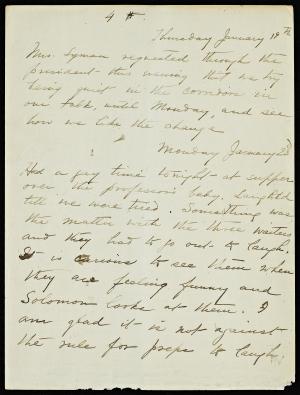 4
Thursday January 19th
Mrs. Lyman requested through the
president this evening that we try
being quiet in the corridors in
our talk, until Monday, and see
how we like the change
Monday January 23d
Had a gay time tonight at supper
over the professor's baby. Laughed
till we were tired. Something was
the matter with the three waiters
and they had to go out to laugh.
It is curious to see them when
they are feeling funny and
Solomon looks at them. I
am glad it is not against
the rule for preps to laugh.